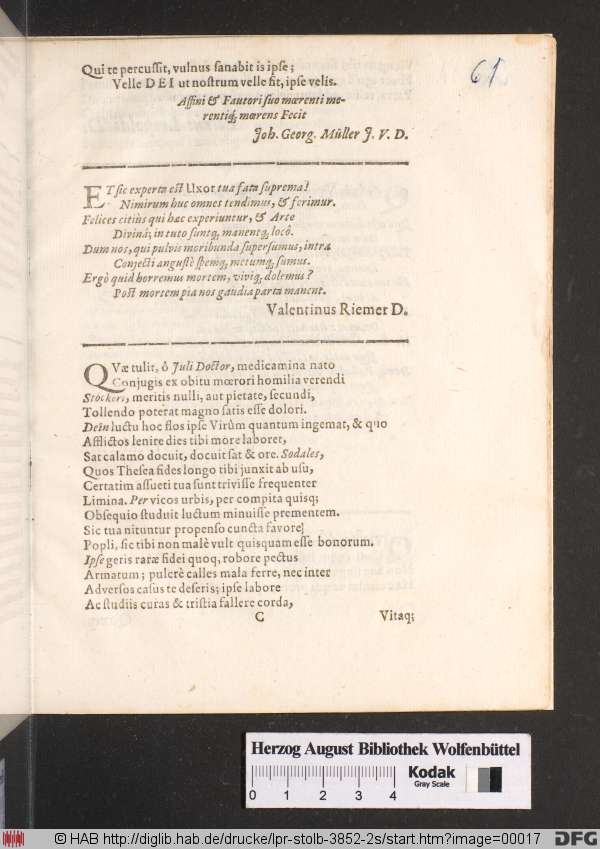 61
Qui te percussit, vulnus sanabit is ipse;
Velle DEI ut nostrum velle fit, ipse velis.
Affini & Fautori suo mœrenti mœ-
rentiq́; mœrens Fecit
Joh. Georg. Müller J. V. D.
ET sic experta est Uxor tua fata suprema?
Nimirum huc omnes tendimus, & ferimur.
Felices citiùs qui hæc experiuntur, & Arte
Divinâ; in tuto suntq́;, manentq́;, locô.
Dum nos, qui pulvis moribunda supersumus, intra
Conjecti angustè spemq́;, metumq́;, sumus.
Ergò quid horremus mortem, viviq́;, dolemus?
Post mortem pia nos gaudia parta manent.
Valentinus Riemer D.
QVæ tulit, ô Juli Doctor, medicamina nato
Conjugis ex obitu mœrori homilia verendi
Stöckeri, meritis nulli, aut pietate, secundi,
Tollendo poterat magno satis esse dolori.
Dein luctu hoc flos ipse Virûm quantum ingemat, & quo
Afflictos lenire dies tibi more laboret,
Sat calamo docuit, docuit sat & ore. Sodales,
Quos Thesea fides longo tibi junxit ab usu,
Certatim assueti tua sunt trivisse frequenter
Limina. Per vicos urbis, per compita quisq;
Obsequio studuit luctum minuisse prementem.
Sic tua nituntur propenso cuncta favore
Popli, sic tibi non malè vult quisquam esse bonorum.
Ipse geris raræ fidei quoq, robore pectus
Armatum; pulcrè calles mala ferre, nec inter
Adversos casus te deseris; ipse labore
Ac studiis curas & tristia fallere corda,
C Vitaq;
Herzog August Bibliothek Wolfenbüttel
0 1 2 3 4
Kodak
Gray Scale
© HAB http://diglib.hab.de/drucke/lpr-stolb-3852-2s/start.htm?image=00017
DFG